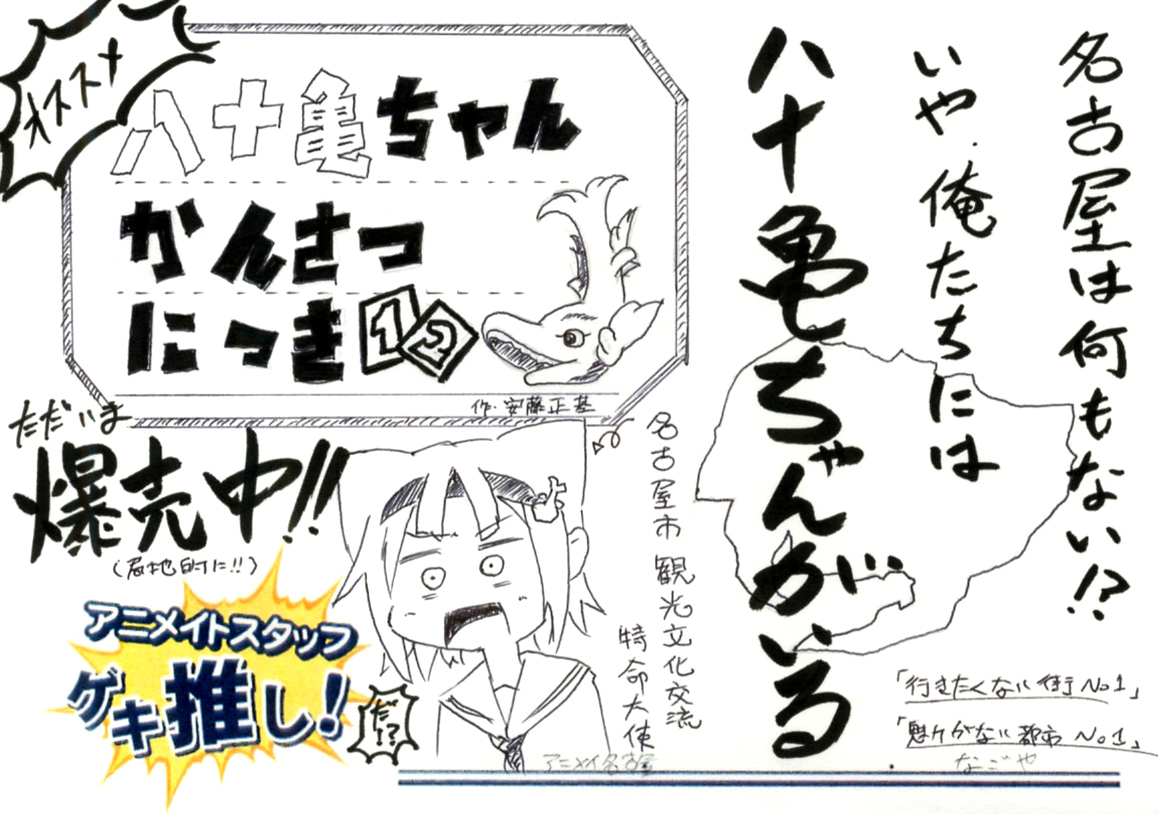 名古屋は何もない!?
いや、俺たちには
八十亀ちゃんがいる
「行きたくない街No1」
「魅力がない都市No1」
なごや
オススメ
八十亀ちゃん
かんさつ
にっき12
作・安藤正基
ただいま
爆売中!!
(局地的に!!)
名古屋市観光文化交流
特命大使
アニメイトスタッフ
ゲキ推し!
だ!?
アニメイト名古屋